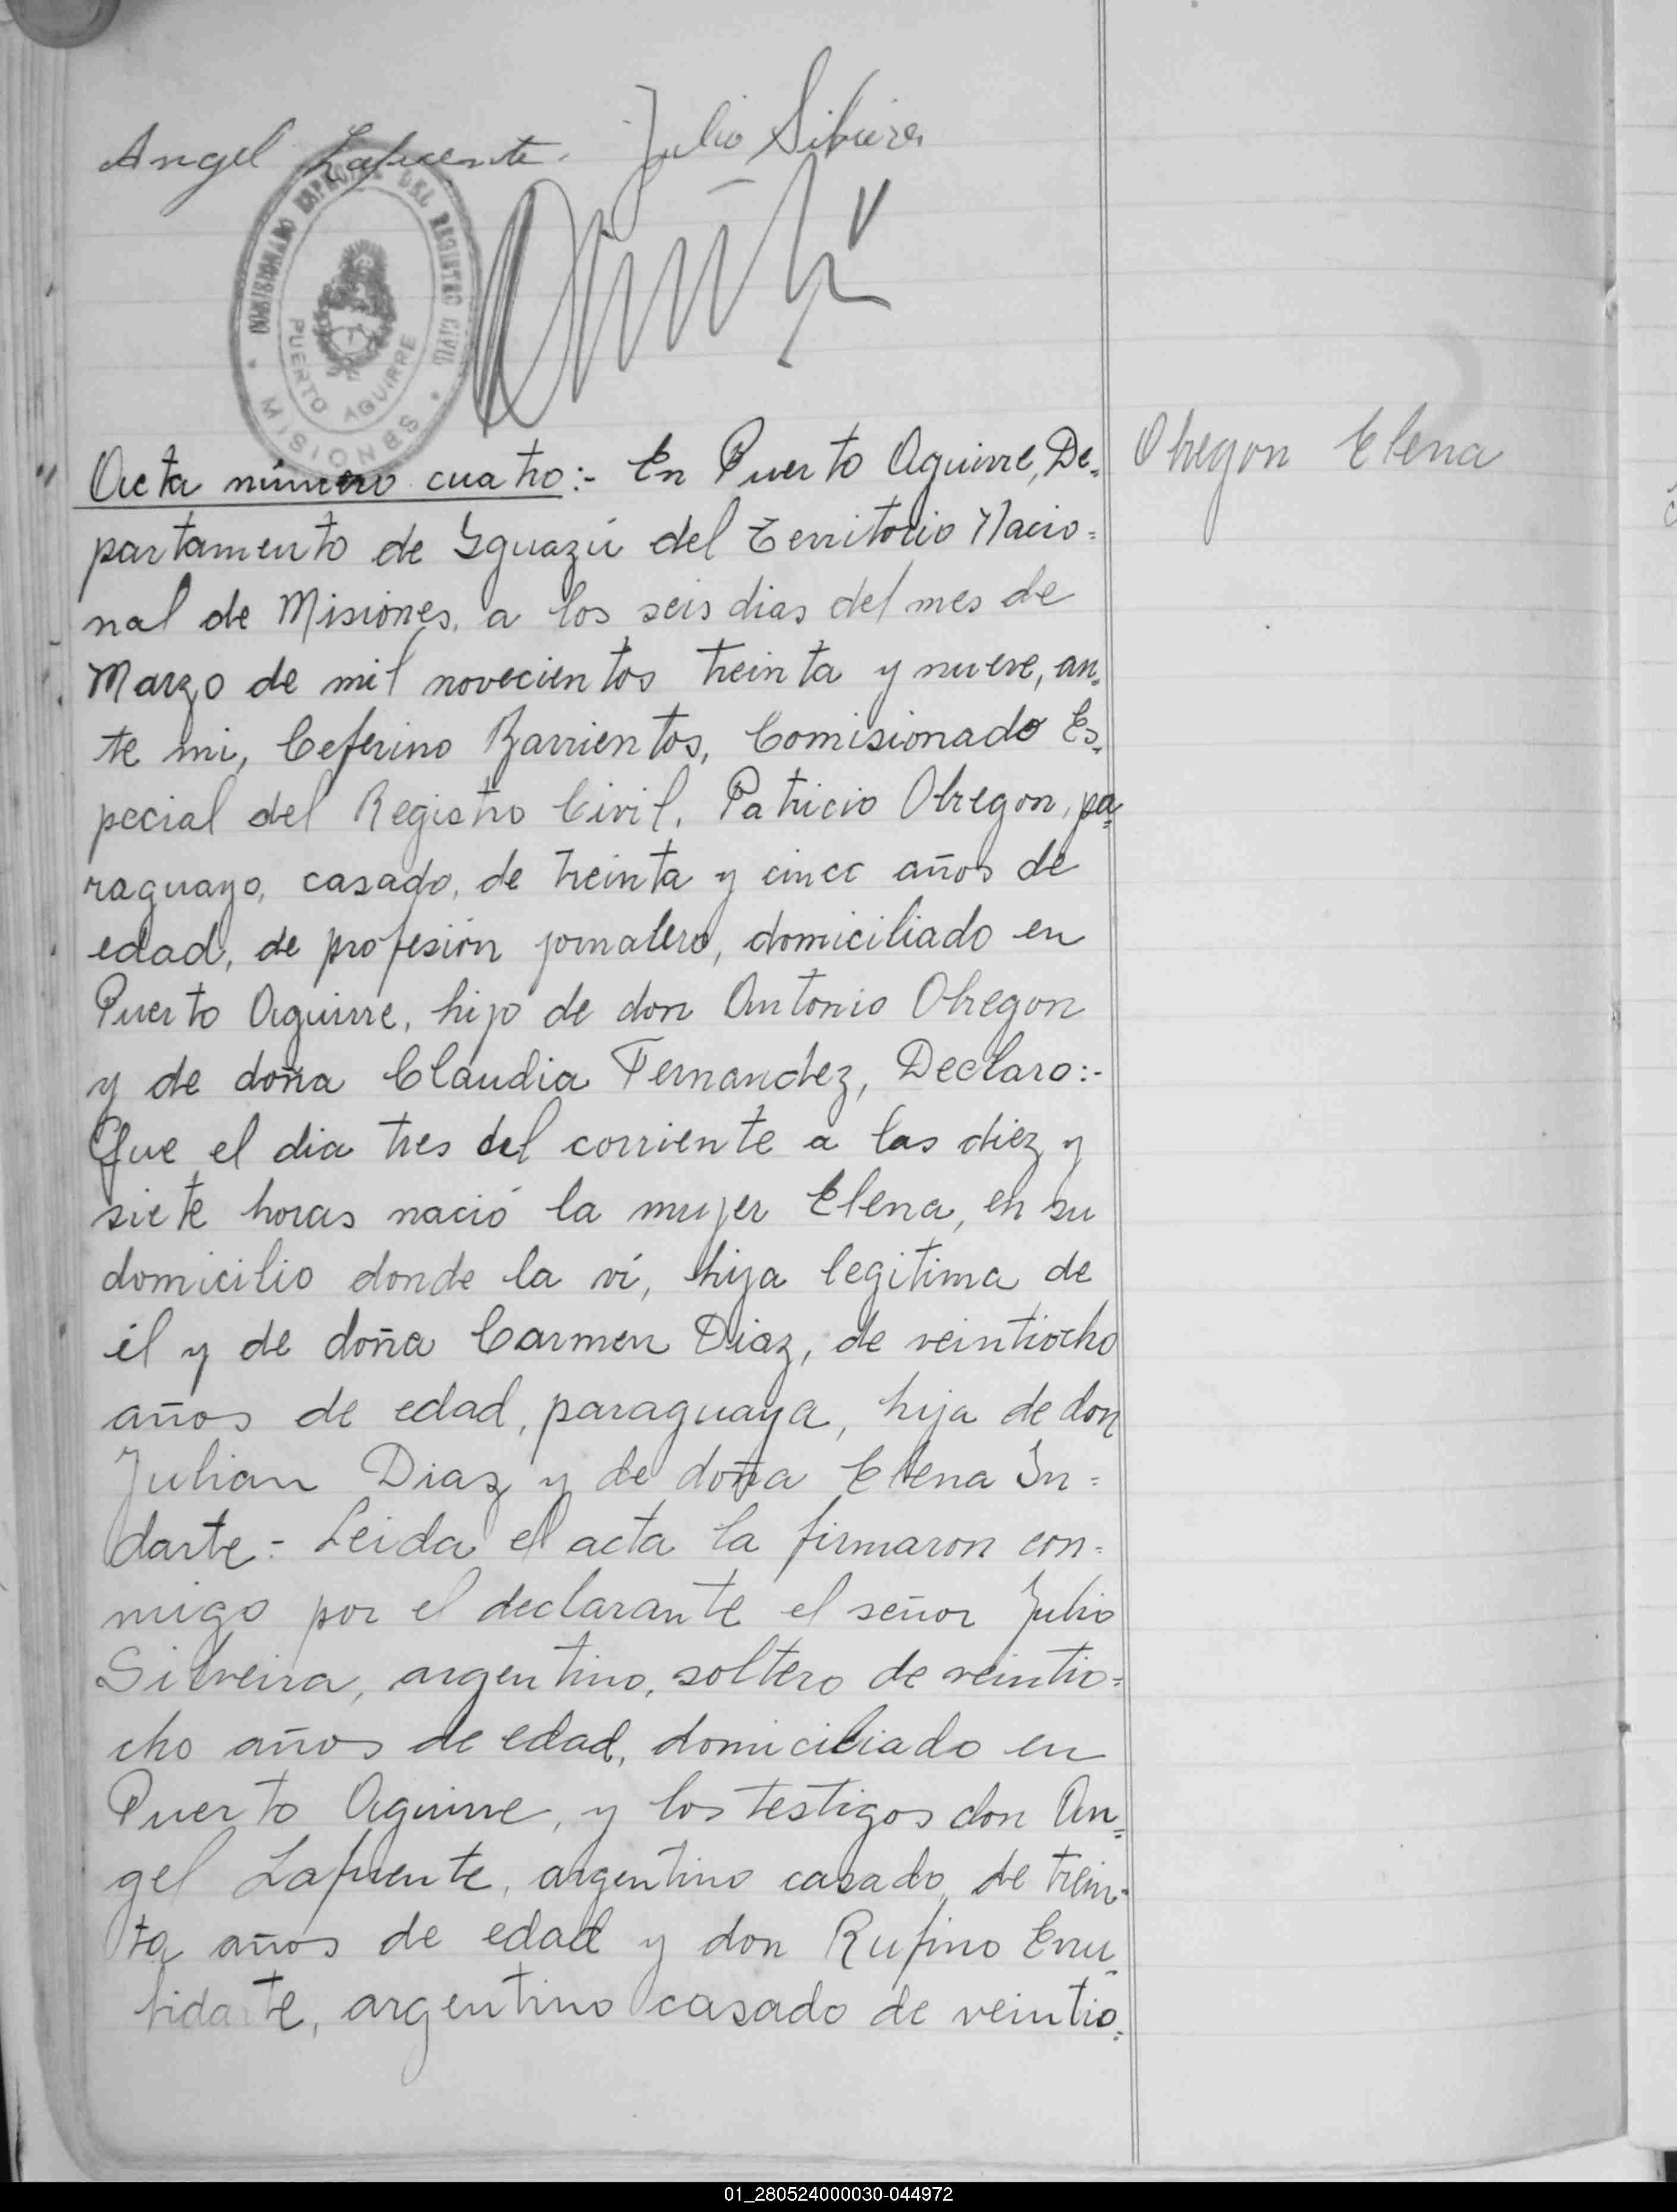 Angel Lafuente. Julio Silveira
COMISIONADO ESPECIAL DEL REGISTRO CIVIL
PUERTO AGUIRRE
MISIONES
Obregon Elena
Acta número cuatro:- En Puerto Aguirre, De=
partamento de Iguazú del Territorio Nacio=
nal de Misiones, a los seis dias del mes de
Marzo de mil novecientos treinta y nueve, an=
te mi, Ceferino Barrientos, Comisionado Es=
pecial del Registro Civil, Patricio Obregon, pa=
raguayo, casado, de treinta y cinco años de
edad, de profesión jornalero, domiciliado en
Puerto Aguirre, hijo de don Antonio Obregon
y de doña Claudia Fernandez, Declaro:-
Que el dia tres del corriente a las diez y
siete horas nació la mujer Elena, en su
domicilio donde la ví, hija legitima de
él y de doña Carmen Diaz, de veintiocho
años de edad, paraguaya, hija de don
Julian Diaz y de doña Elena In=
darte.- Leida el acta la firmaron con=
migo por el declarante el señor Julio
Silveira, argentino, soltero de veintio=
cho años de edad, domiciliado en
Puerto Aguirre, y los testigos don An=
gel Lafuente, argentino casado, de trein=
ta años de edad y don Rufino Erru=
bidarte, argentino casado de veintio=
01_280524000030-044972